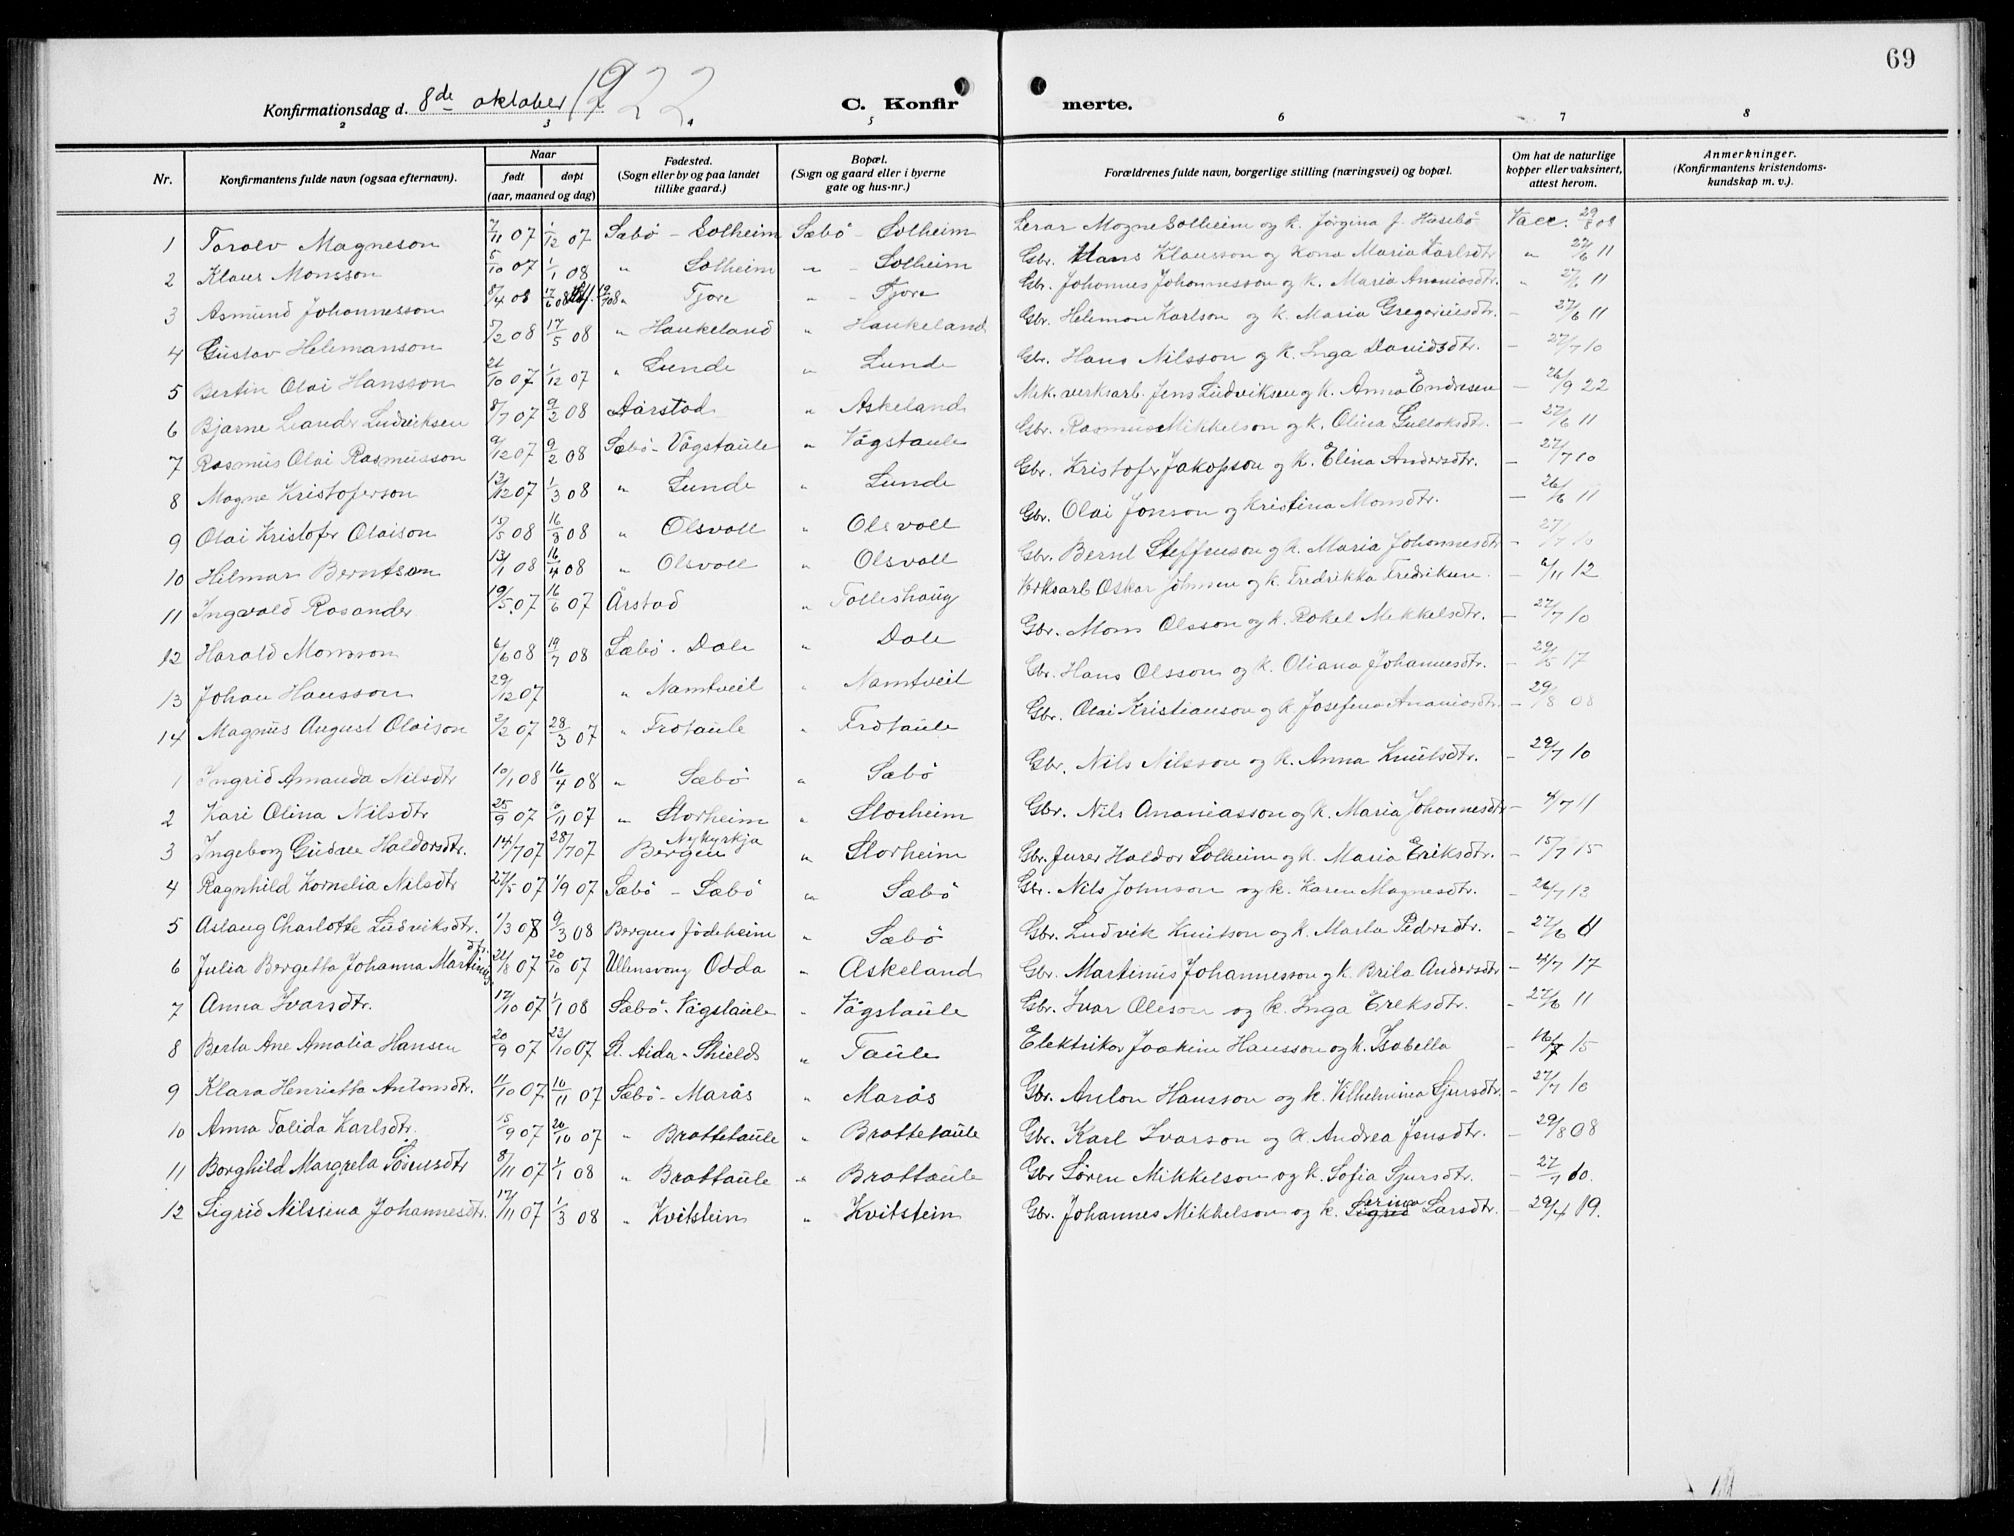 69
Konfirmationsdag d. 8de oktober 1922
C. Konfirmerte.
2 3 4 5 6 7 8
Nr. Konfirmantens fulde navn (ogsaa efternavn). Naar født døpt (aar, maaned og dag) Fødested. (Sogn eller by og paa landet tillike gaard.) Bopæl. (Sogn og gaard eller i byerne gate og hus-nr.) Forældrenes fulde navn, borgerlige stilling (næringsvei) og bopæl. Om hat de naturlige kopper eller vaksinert, attest herom. Anmerkninger. (Konfirmantens kristendoms-kundskap m. v.).
1 Torolv Magneson 7/11 07 1/12 07 Sæbö - Solheim Sæbö - Solheim Lerar Mogne Solheim og k. Jørgina f. Husebö Vacc. 29/8 08
2 Klaus Monsson 5/10 07 1/1 08 " Solheim " - Solheim Gbr. Mons Klausson og Kona Maria Karlsdtr. " 27/6 11
3 Asmund Johannesson 8/4 08 17/6 08 19/7 08 " Fjore " - Fjore Gbr. Johannes Johannesson og k. Maria Ananiasdtr. " 27/6 11
4 Gustav Helemanson 5/2 08 17/5 08 " Haukeland " Haukeland Gbr. Heleman Karlson og k. Maria Gregoriusdtr. - 27/6 11
5 Bertin Olai Hansson 21/10 07 1/12 07 " Lunde " Lunde Gbr. Hans Nilsson og k. Inga Davidsdtr. - 27/7 10
6 Bjarne Leander Ludviksen 8/7 07 9/2 08 Aarstad " Askeland Mek. verksarb. Jens Ludviksen og k. Anna Endresen - 26/9 22
7 Rasmus Olai Rasmusson 9/12 07 9/2 08 Sæbö - Vågstaule " Vågstaule Gbr. Rasmus Mikkelson og k. Olina Gulloksdtr. - 27/6 11
8 Magne Kristoferson 13/12 07 1/3 08 " Lunde " Lunde Gbr. Kristofer Jakopson og k. Elina Andersdtr. - 27/7 10
9 Olai Kristofer Olaison 15/5 08 16/8 08 " Olsvoll " Olsvoll Gbr. Olai Jonson og Kristina Monsdtr. - 26/6 11
10 Hilmar Berntson 13/1 08 16/4 08 " Olsvoll " Olsvoll Gbr. Bernt Steffenson og k. Maria Johannesdtr - 27/7 10
11 Ingvald Rosander 19/5 07 16/6 07 Årstad " Tolleshaug Verksarb Oskar Johnsen og k. Fredrikka Fredriksen. - 6/11 12
12 Harald Monsson 6/6 08 19/7 08 Sæbö - Dale " Dale Gbr. Mons Olsson og k. Rakel Mekkelsdtr. - 27/7 10
13 Johan Hansson 29/12 07 " Namtveit " Namtveit Gbr. Hans Olsson og k. Oliana Johannesdtr. - 29/5 17
14 Magnus August Olaison 2/2 07 28/3 07 " Frotaule " Frotaule Gbr. Olai Kristianson og k Josefina Ananiasdtr. - 29/8 08
1 Ingrid Amanda Nilsdtr 19/1 08 16/4 08 " Sæbö " Sæbö Gbr. Nils Nilsson og k. Anna Knutsdtr. - 29/7 10
2 Kari Olina Nilsdtr 25/9 07 6/11 07 " Storheim " Storheim Gbr. Nils Ananiasson og k. Maria Johannesdtr - 4/7 11
3 Ingeborg Gudree Haldorsdtr. 14/7 07 28/7 07 Bergen Nykyrkja " Storheim Gbr. Jurer Haldor Solheim og k. Maria Eriksdtr. - 15/7 15
4 Ragnhild Kornelia Nilsdtr 27/5 07 1/9 07 Sæbö - Sæbö " Sæbö Gbr. Nils Johnson og k. Karen Magnesdtr. - 26/7 13
5 Aslaug Charlotte Ludviksdtr. 1/3 08 9/3 08 Bergens födeheim " Sæbö Gbr. Ludvik Knutson og k. Marta Pedersdtr. - 27/6 11
6 Julia Bergetta Johanna Martinusdtr. 21/8 07 20/10 07 Ullensvang Odda " Askeland Gbr. Martinus Johannesson og k. Brita Andersdtr - 4/7 17
7 Anna Ivarsdtr. 17/10 07 1/1 08 Sæbö - Vågstaule " Vågstaule Gbr. Ivar Oleson og k. Inga Ereksdtr. - 27/6 11
8 Berta Ane Amalia Hansen 20/9 07 23/10 07 St. Aida - Shields " Taule Elektriker Joakim Hansson og k. Isabella - 16/7 15
9 Klara Henrietta Antonsdtr. 11/10 07 10/11 07 Sæbö - Marås " Marås Gbr. Anton Hansson og k. Vilhelmina Sjursdtr. - 27/7 10
10 Anna Talida Karlsdtr. 15/9 07 20/10 07 " Brattetaule " Brattetaule Gbr. Karl Ivarson og k. Andrea Jensdtr. - 29/8 08
11 Borghild Margreta Sörensdtr 8/11 07 1/1 08 " Brattaule " Brattaule Gbr Søren Mikkelson og k. Sofia Sjursdtr. - 27/7 10.
12 Sigrid Nilssina Johannesdtr. 17/11 07 1/3 08 " Kvitstein " Kvitstein Gbr. Johannes Mikkelson og k. Serina Larsdtr. - 29/4 19.